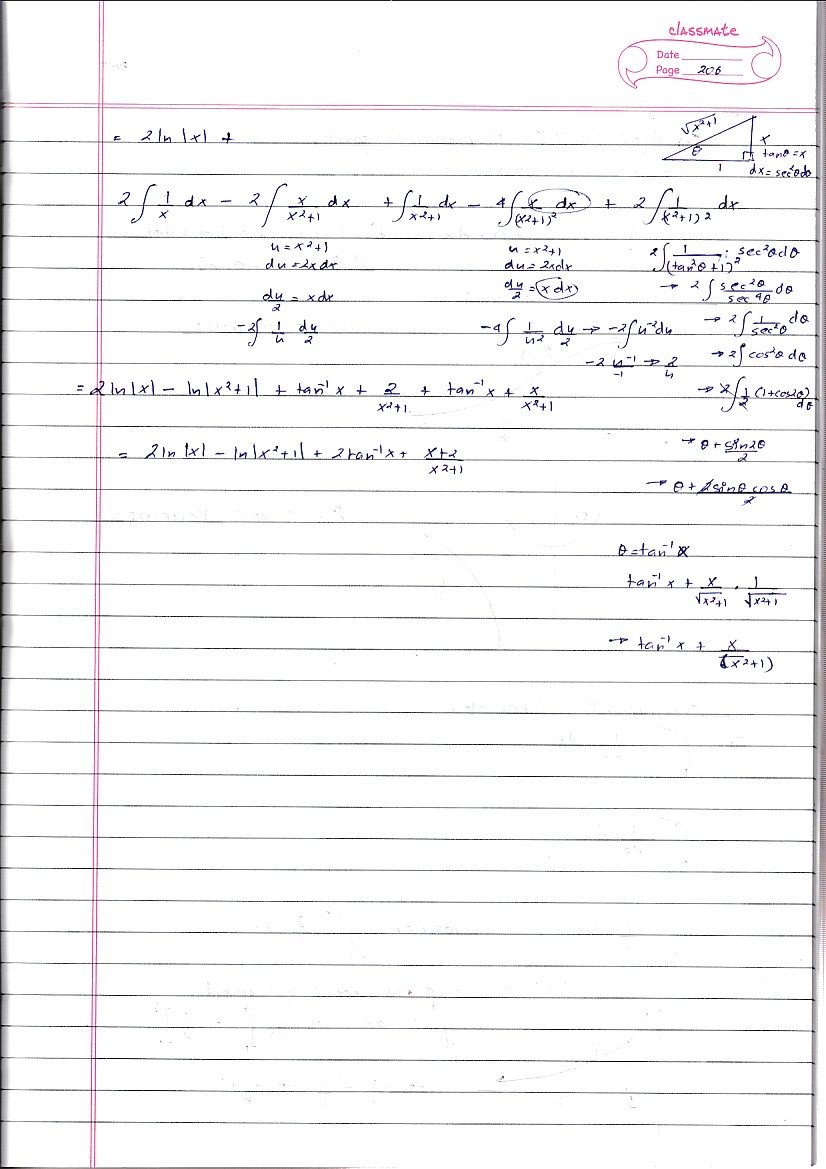 classmate
Date
Page 206
= 2 ln |x| +
√x²+1
θ
x
1
tanθ = x
dx = sec²θdθ
2∫ 1/x dx − 2∫ x/x²+1 dx + ∫ 1/x²+1 dx − 4∫ x dx/(x²+1)² + 2∫ 1/(x²+1)² dx
u = x²+1
du = 2x dx
du/2 = x dx
-2∫ 1/u du/2
u = x²+1
du = 2x dx
du/2 = x dx
-4∫ 1/u² du/2 → -2∫u⁻²du
-2 u⁻¹/-1 → 2/u
2∫ 1/(tan²θ+1)² · sec²θ dθ
→ 2∫ sec²θ/sec⁴θ dθ
→ 2∫ 1/sec²θ dθ
→ 2∫cos²θ dθ
→ 2∫ 1/2 (1+cos2θ) dθ
→ θ + sin2θ/2
→ θ + 2sinθ cosθ/2
θ = tan⁻¹ x
tan⁻¹ x + x/√x²+1 · 1/√x²+1
→ tan⁻¹ x + x/(x²+1)
= 2 ln |x| − ln |x²+1| + tan⁻¹ x + 2/x²+1 + tan⁻¹ x + x/x²+1
= 2 ln |x| − ln |x²+1| + 2tan⁻¹ x + x+2/x²+1